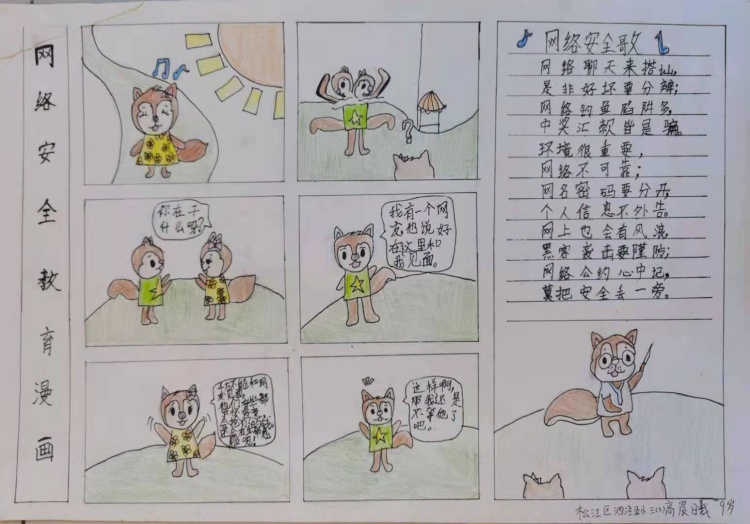 网络安全教育漫画
?
你在干
什么呀?
我有一个网
友他说好
在这里和
我见面。
这样啊,
那我还是
不等他了
吧。
网络安全歌
网络聊天来搭讪,
是非好坏要分辨;
网络钓鱼陷阱多,
中奖汇款皆是骗。
环境很重要,
网络不可靠;
网名密码要分开,
个人信息不外告。
网上也会有风浪,
黑客袭击要谨防;
网络公约心中记,
莫把安全丢一旁。
松江区泗泾 高晨曦 9岁